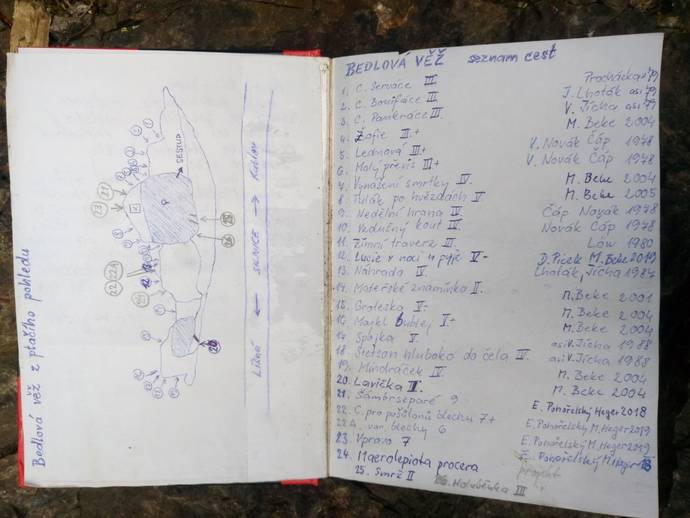 Bedlová věž z ptačího pohledu
SESTUP
Líšná ← SILNICE → Kublov
BEDLOVÁ VĚŽ seznam cest
1. C. Serváce III Procházka 79
2. C. Bonifáce III J. Lhoták asi 79
3. C. Pankráce III V. Jícha asi 79
4. Žofie II+ M. Beke 2004
5. Lednová III+ V. Novák Čáp 1978
6. Malý převis III+ V. Novák Čáp 1978
7. Vynášení smrtky IV. M. Beke 2004
8. Tulák po hvězdách V M. Beke 2005
9. Nedělní hrana V Čáp Novák 1978
10. Vedušný kout IV Novák Čáp 1978
11. Zimní traverz III Löw 1980
12. Lucie v noci u pyje V- D. Picek M. Beke 2019
13. Náhrada IV Lhoták, Jícha 1987
14. Mateřské znamínka II. M. Beke 2001
15. Groteska V- M. Beke 2004
16. Majkl bublej V+ M. Beke 2004
17. Spojka V asi V. Jícha 1988
18. Stetson hluboko do čela IV. asi V. Jícha 1988
19. Mindráček IV M. Beke 2004
20. Lavička II. M. Beke 2004
21. Šambrseparé 9 E. Pohořelský Heger 2018
22. C. pro pošťatou blechu 7+ E. Pohořelský M. Heger 2019
22A. var. blechy 6 E. Pohořelský M. Heger 2019
23. Vpravo 7 E. Pohořelský M. Heger
24. Macrolepiota procera projekt
25. Smrž II
26. Holubinka III